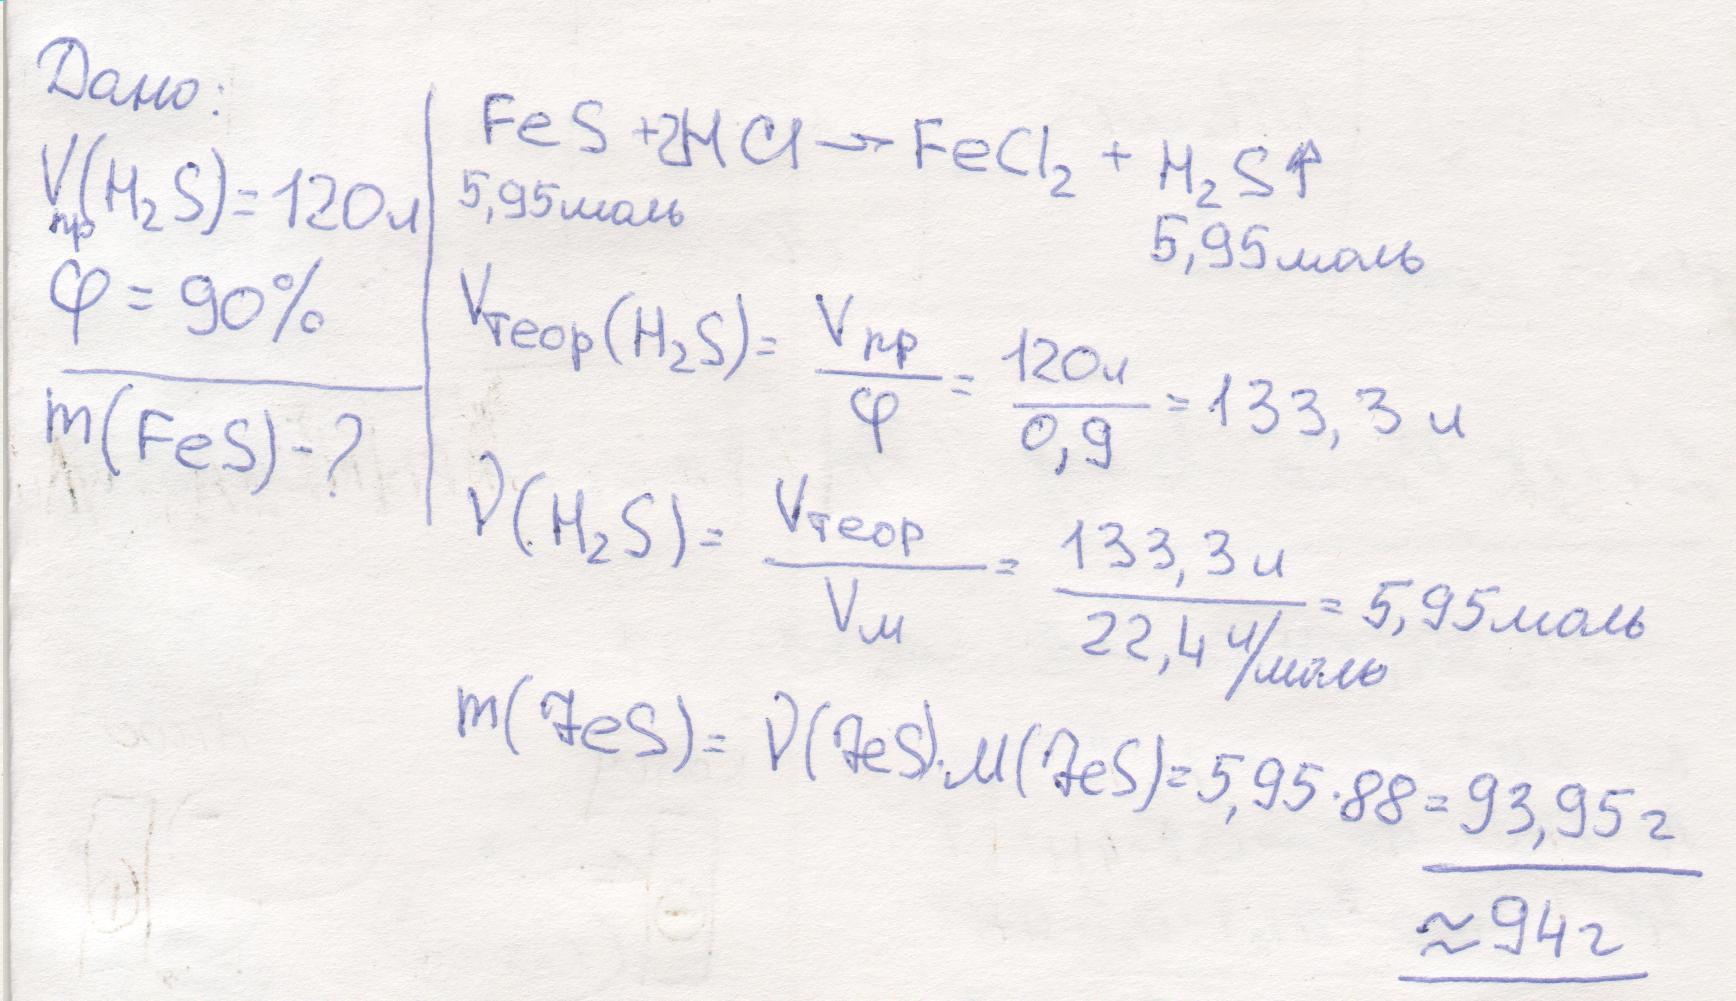 Дано:
Vпр(H₂S)=120л
φ = 90%
m(FeS)-?
FeS + 2HCl → FeCl₂ + H₂S↑
5,95моль 5,95моль
Vтеор(H₂S)= Vпр/φ = 120л/0,9 = 133,3 л
ν(H₂S)= Vтеор/Vм = 133,3 л/22,4 л/моль = 5,95моль
m(FeS)= ν(FeS)·M(FeS)=5,95·88=93,95г
≈94г